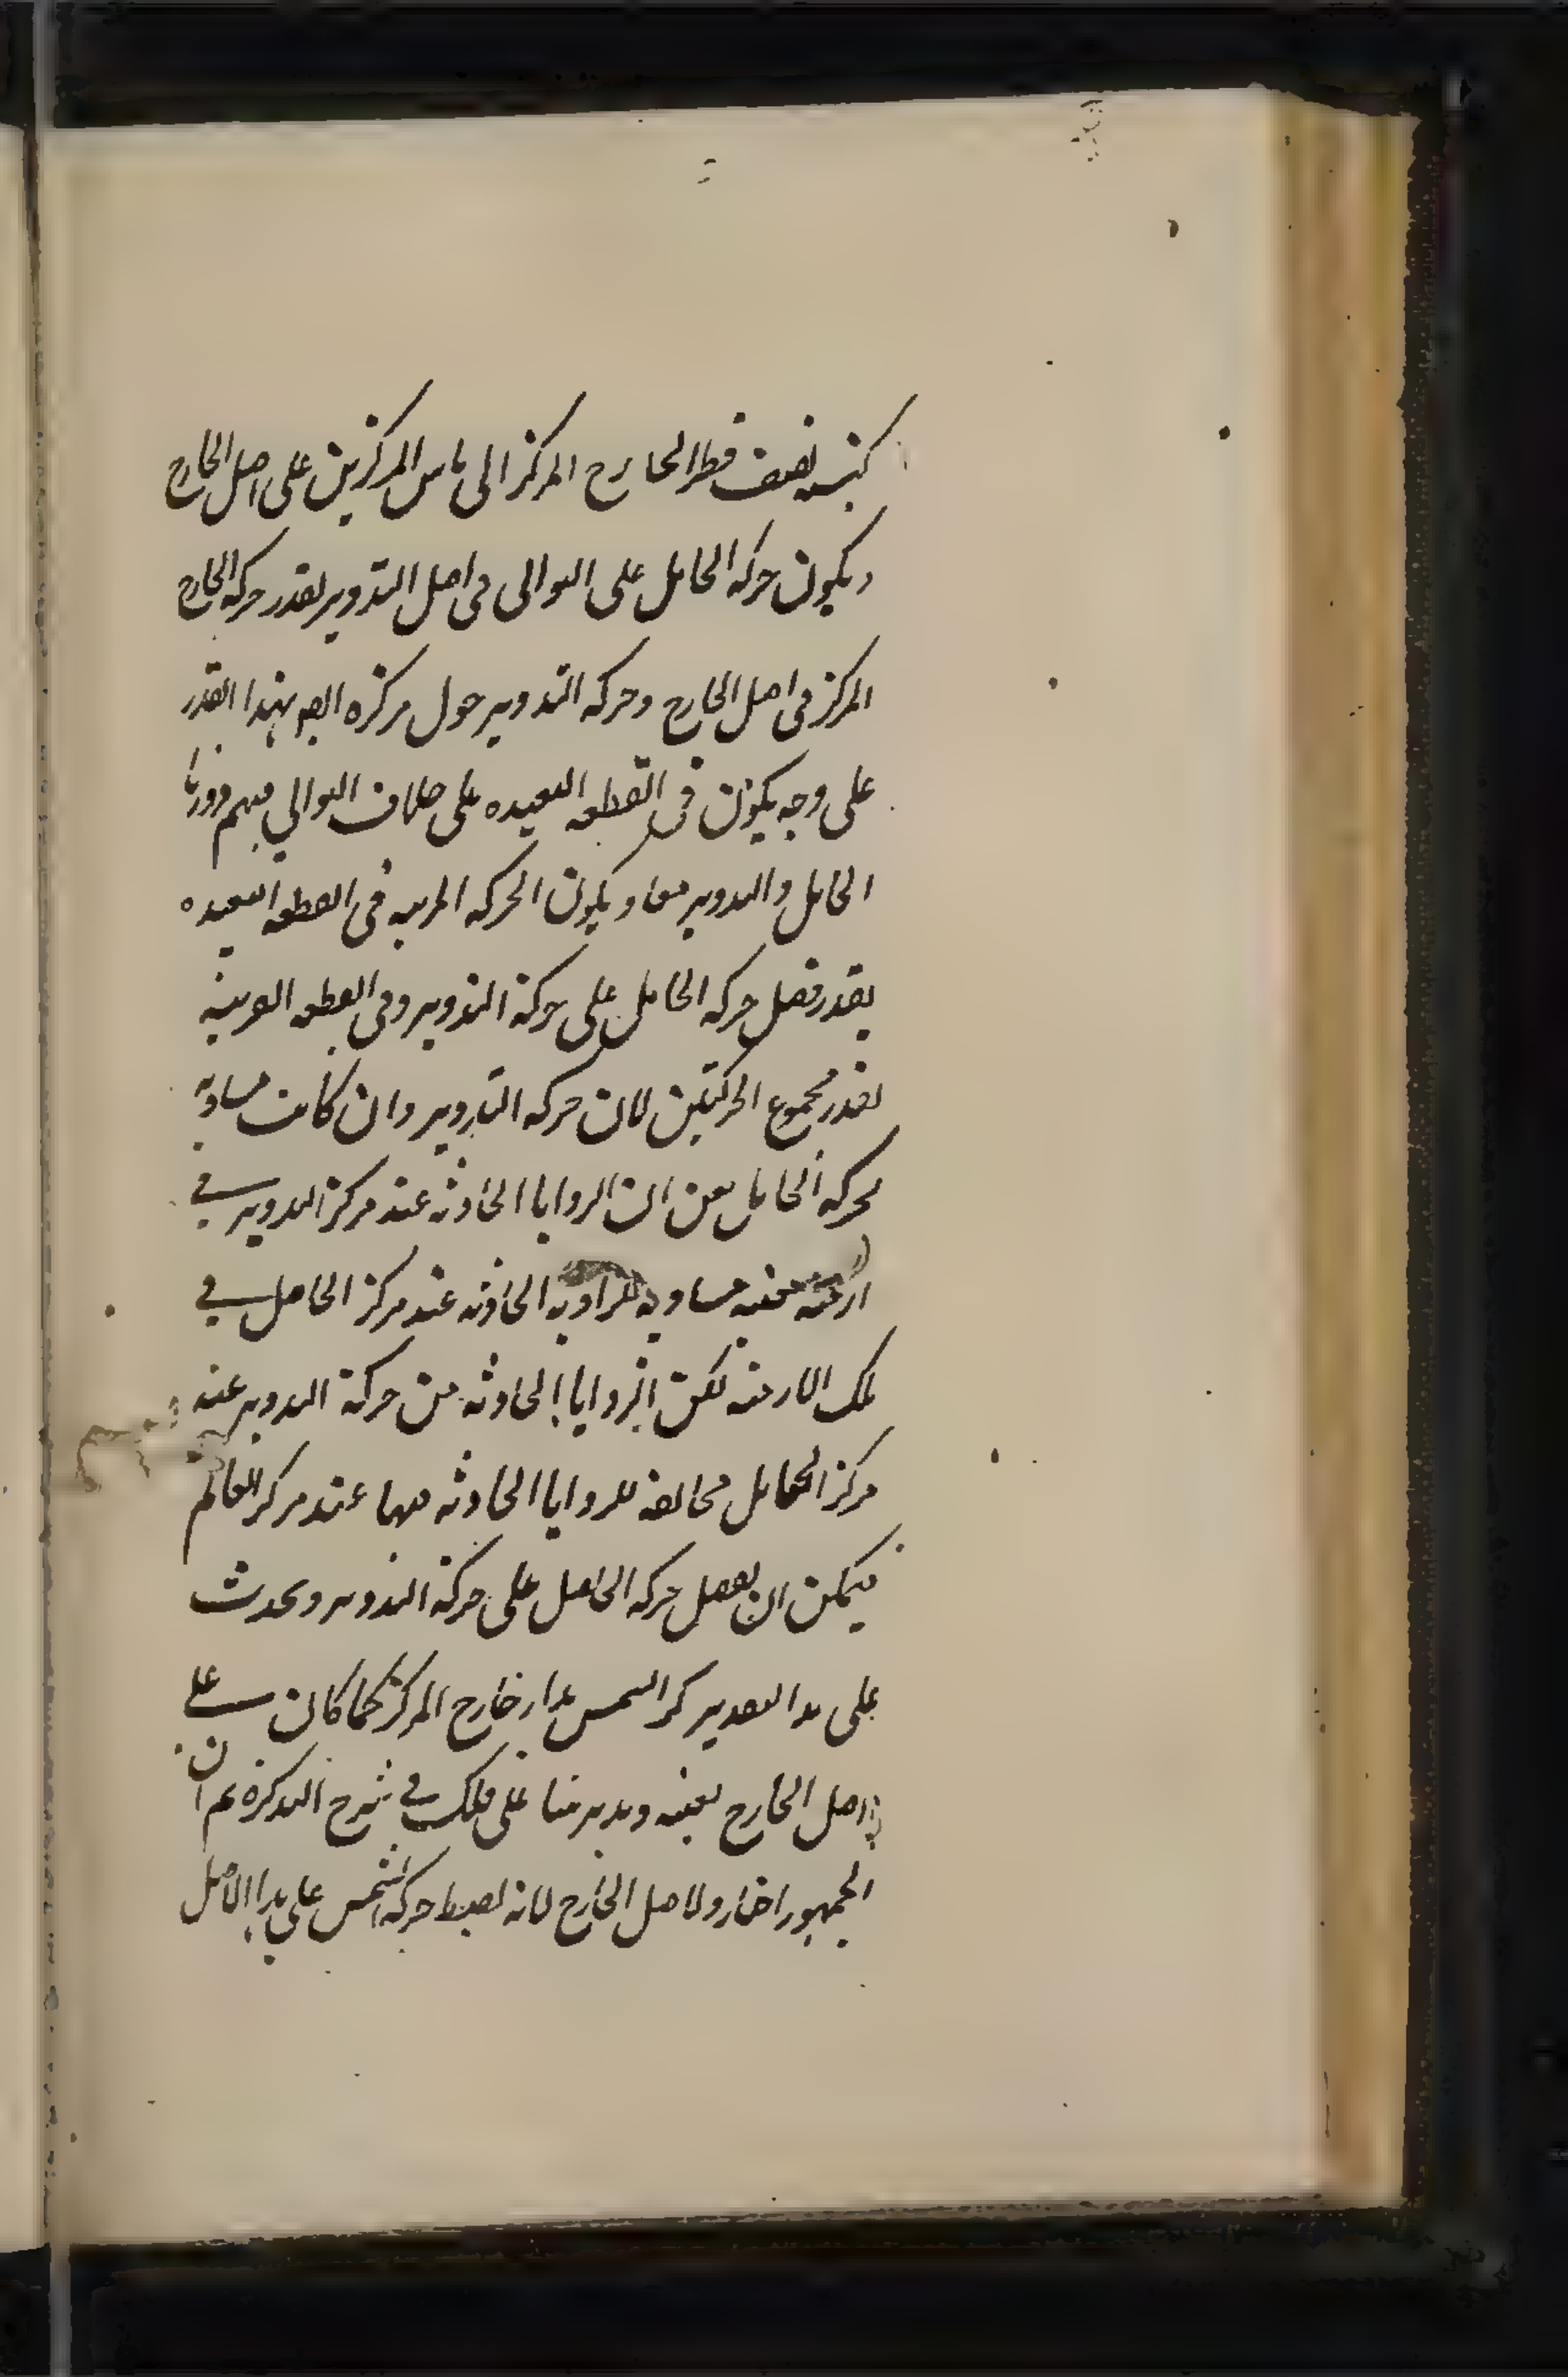 كنسبة نصف قطر الخارج المركز الى ما بين المركزين على اصل الخارج
ويكون حركه الحامل على التوالى فى اصل التدوير بقدر حركه الخارج
المركز فى اصل الخارج وحركه التدوير حول مركزه ايضا بهذا القدر
على وجه يكون فى القطعه البعيده على خلاف التوالي فيتم دورتا
الحامل والتدوير معا ويكون الحركه المرئيه فى القطعه البعيده
بقدر فضل حركه الحامل على حركة التدوير وفى القطعه القريبة
بقدر مجموع الحركتين لان حركه التدوير وان كانت مساويه
لحركه الحامل بمعنى ان الزوايا الحادثه عند مركز التدوير في
ازمنه معينه مساويه للزاويه الحادثه عند مركز الحامل في
تلك الازمنه لكن الزوايا الحادثه من حركة التدوير عند
مركز الحامل مخالفة للزوايا الحادثه منها عند مركز العالم
فيمكن ان يفضل حركه الحامل على حركة التدوير ويحدث
على هذا التقدير لمركز الشمس مدار خارج المركز كما كان على
اصل الخارج بعينه وبدير منا على فلك في شرح التذكره ثم ان
الجمهور اختاروا اصل الخارج لانه لضبط حركه الشمس على هذا الاصل